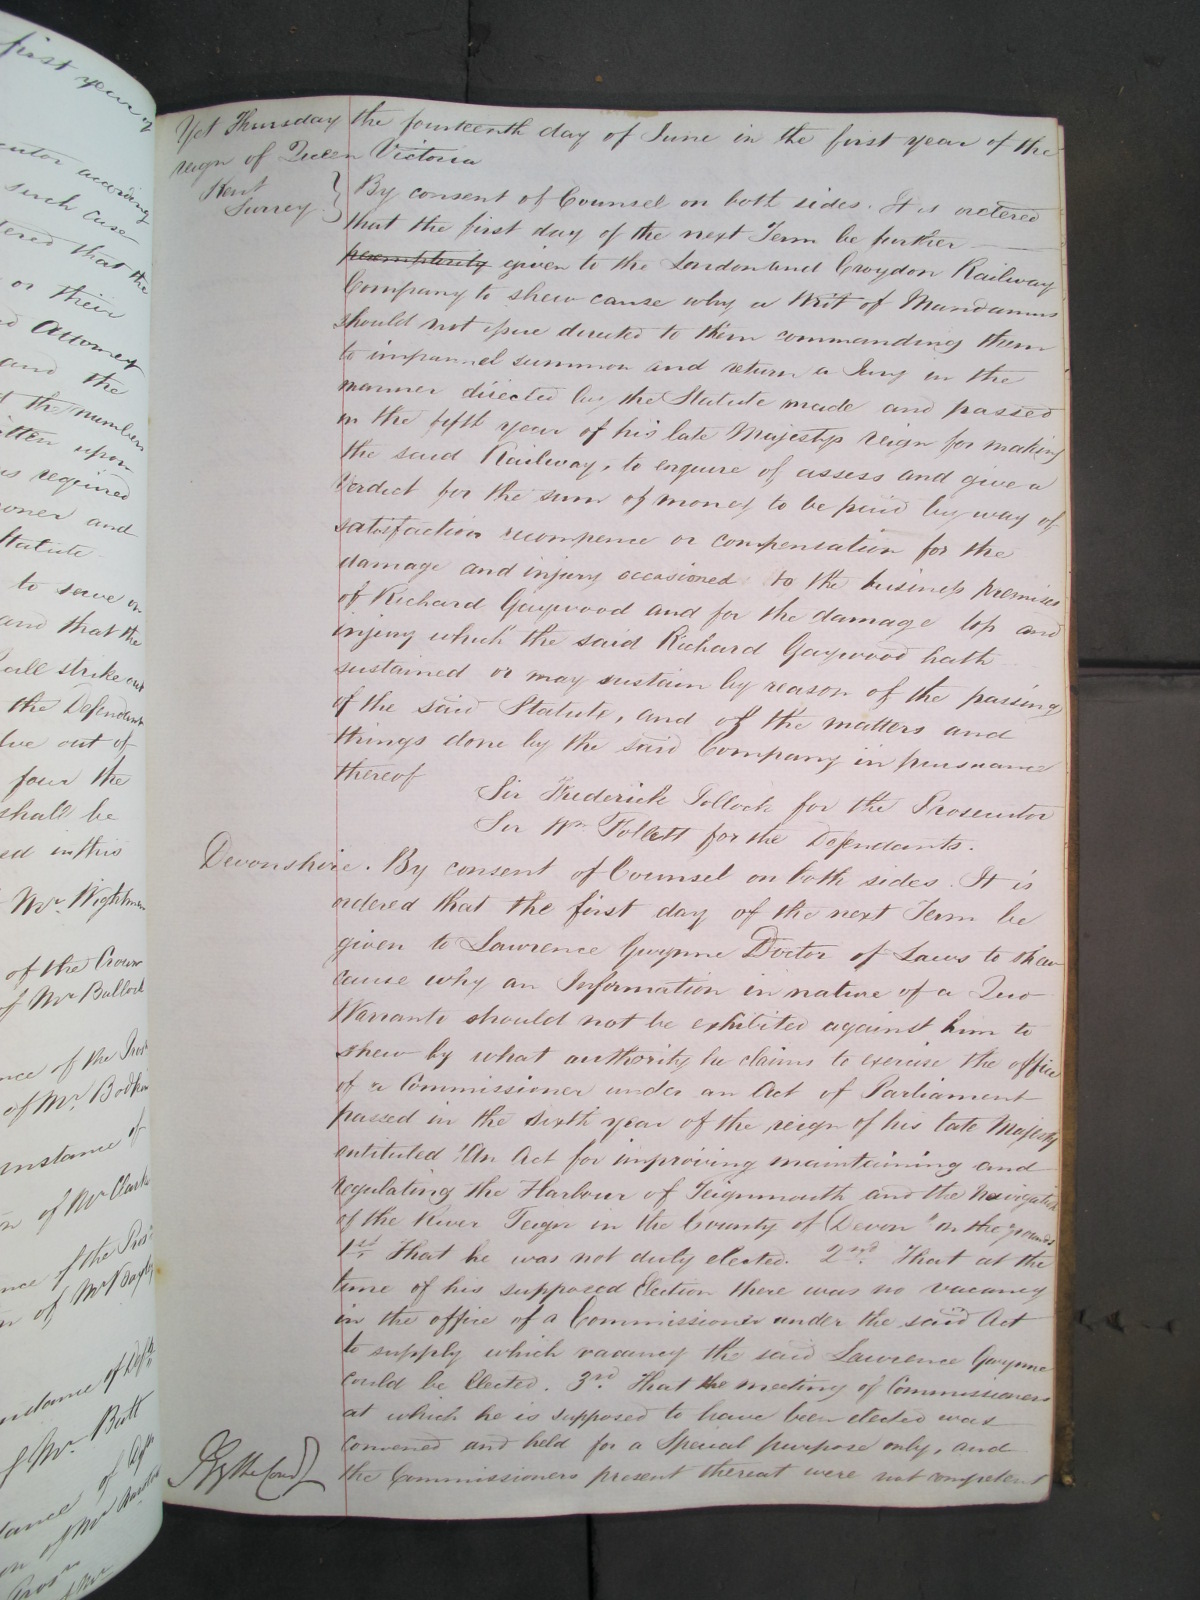 first year of
Yet Thursday the fourteenth day of June in the first year of the
reign of Queen Victoria
Kent
Surrey } By consent of Counsel on both sides. It is ordered
that the first day of the next Term be further
peremptorily given to the London and Croydon Railway
Company to shew cause why a Writ of Mandamus
should not issue directed to them commanding them
to impannel summon and return a Jury in the
manner directed by the Statute made and passed
in the fifth year of his late Majestys reign for making
the said Railway, to enquire of assess and give a
Verdict for the sum of money to be paid by way of
satisfaction recompence or compensation for the
damage and injury occasioned to the business premises
of Richard Gaywood and for the damage loss and
injury which the said Richard Gaywood hath
sustained or may sustain by reason of the passing
of the said Statute, and of the matters and
things done by the said Company in pursuance
thereof
Sir Frederick Pollock for the Prosecutor
Sir Wm. Follett for the Defendants.
Devonshire. By consent of Counsel on both sides. It is
ordered that the first day of the next Term be
given to Lawrence Gwynne Doctor of Laws to shew
cause why an Information in nature of a Quo
Warranto should not be exhibited against him to
shew by what authority he claims to exercise the office
of a Commissioner under an Act of Parliament
passed in the sixth year of the reign of his late Majesty
intituled "An Act for improving maintaining and
regulating the Harbour of Teignmouth and the Navigation
of the River Teign in the County of Devon" on the grounds
1st. That he was not duly elected. 2nd. That at the
time of his supposed Election there was no vacancy
in the office of a Commissioner under the said Act
to supply which vacancy the said Lawrence Gwynne
could be Elected. 3rd. That the meeting of Commissioners
at which he is supposed to have been elected was
convened and held for a Special purpose only, and
the Commissioners present thereat were not competent
By the Court
according
such case
that the
or their
Attorney
and the
the numbers
upon
required
and
Statute
to serve on
and that the
strike out
the Defendant
out of
four the
shall be
in this
Mr. Wightman
of the Crown
of Mr Bullock
of the Pros
of Mr. Bodkin
instance of
of Mr Clark
of the Pros
of Mr Bayley
instance of Deft
Mr. Batt